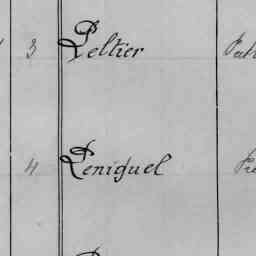 3 Peltier
4 Peniguel